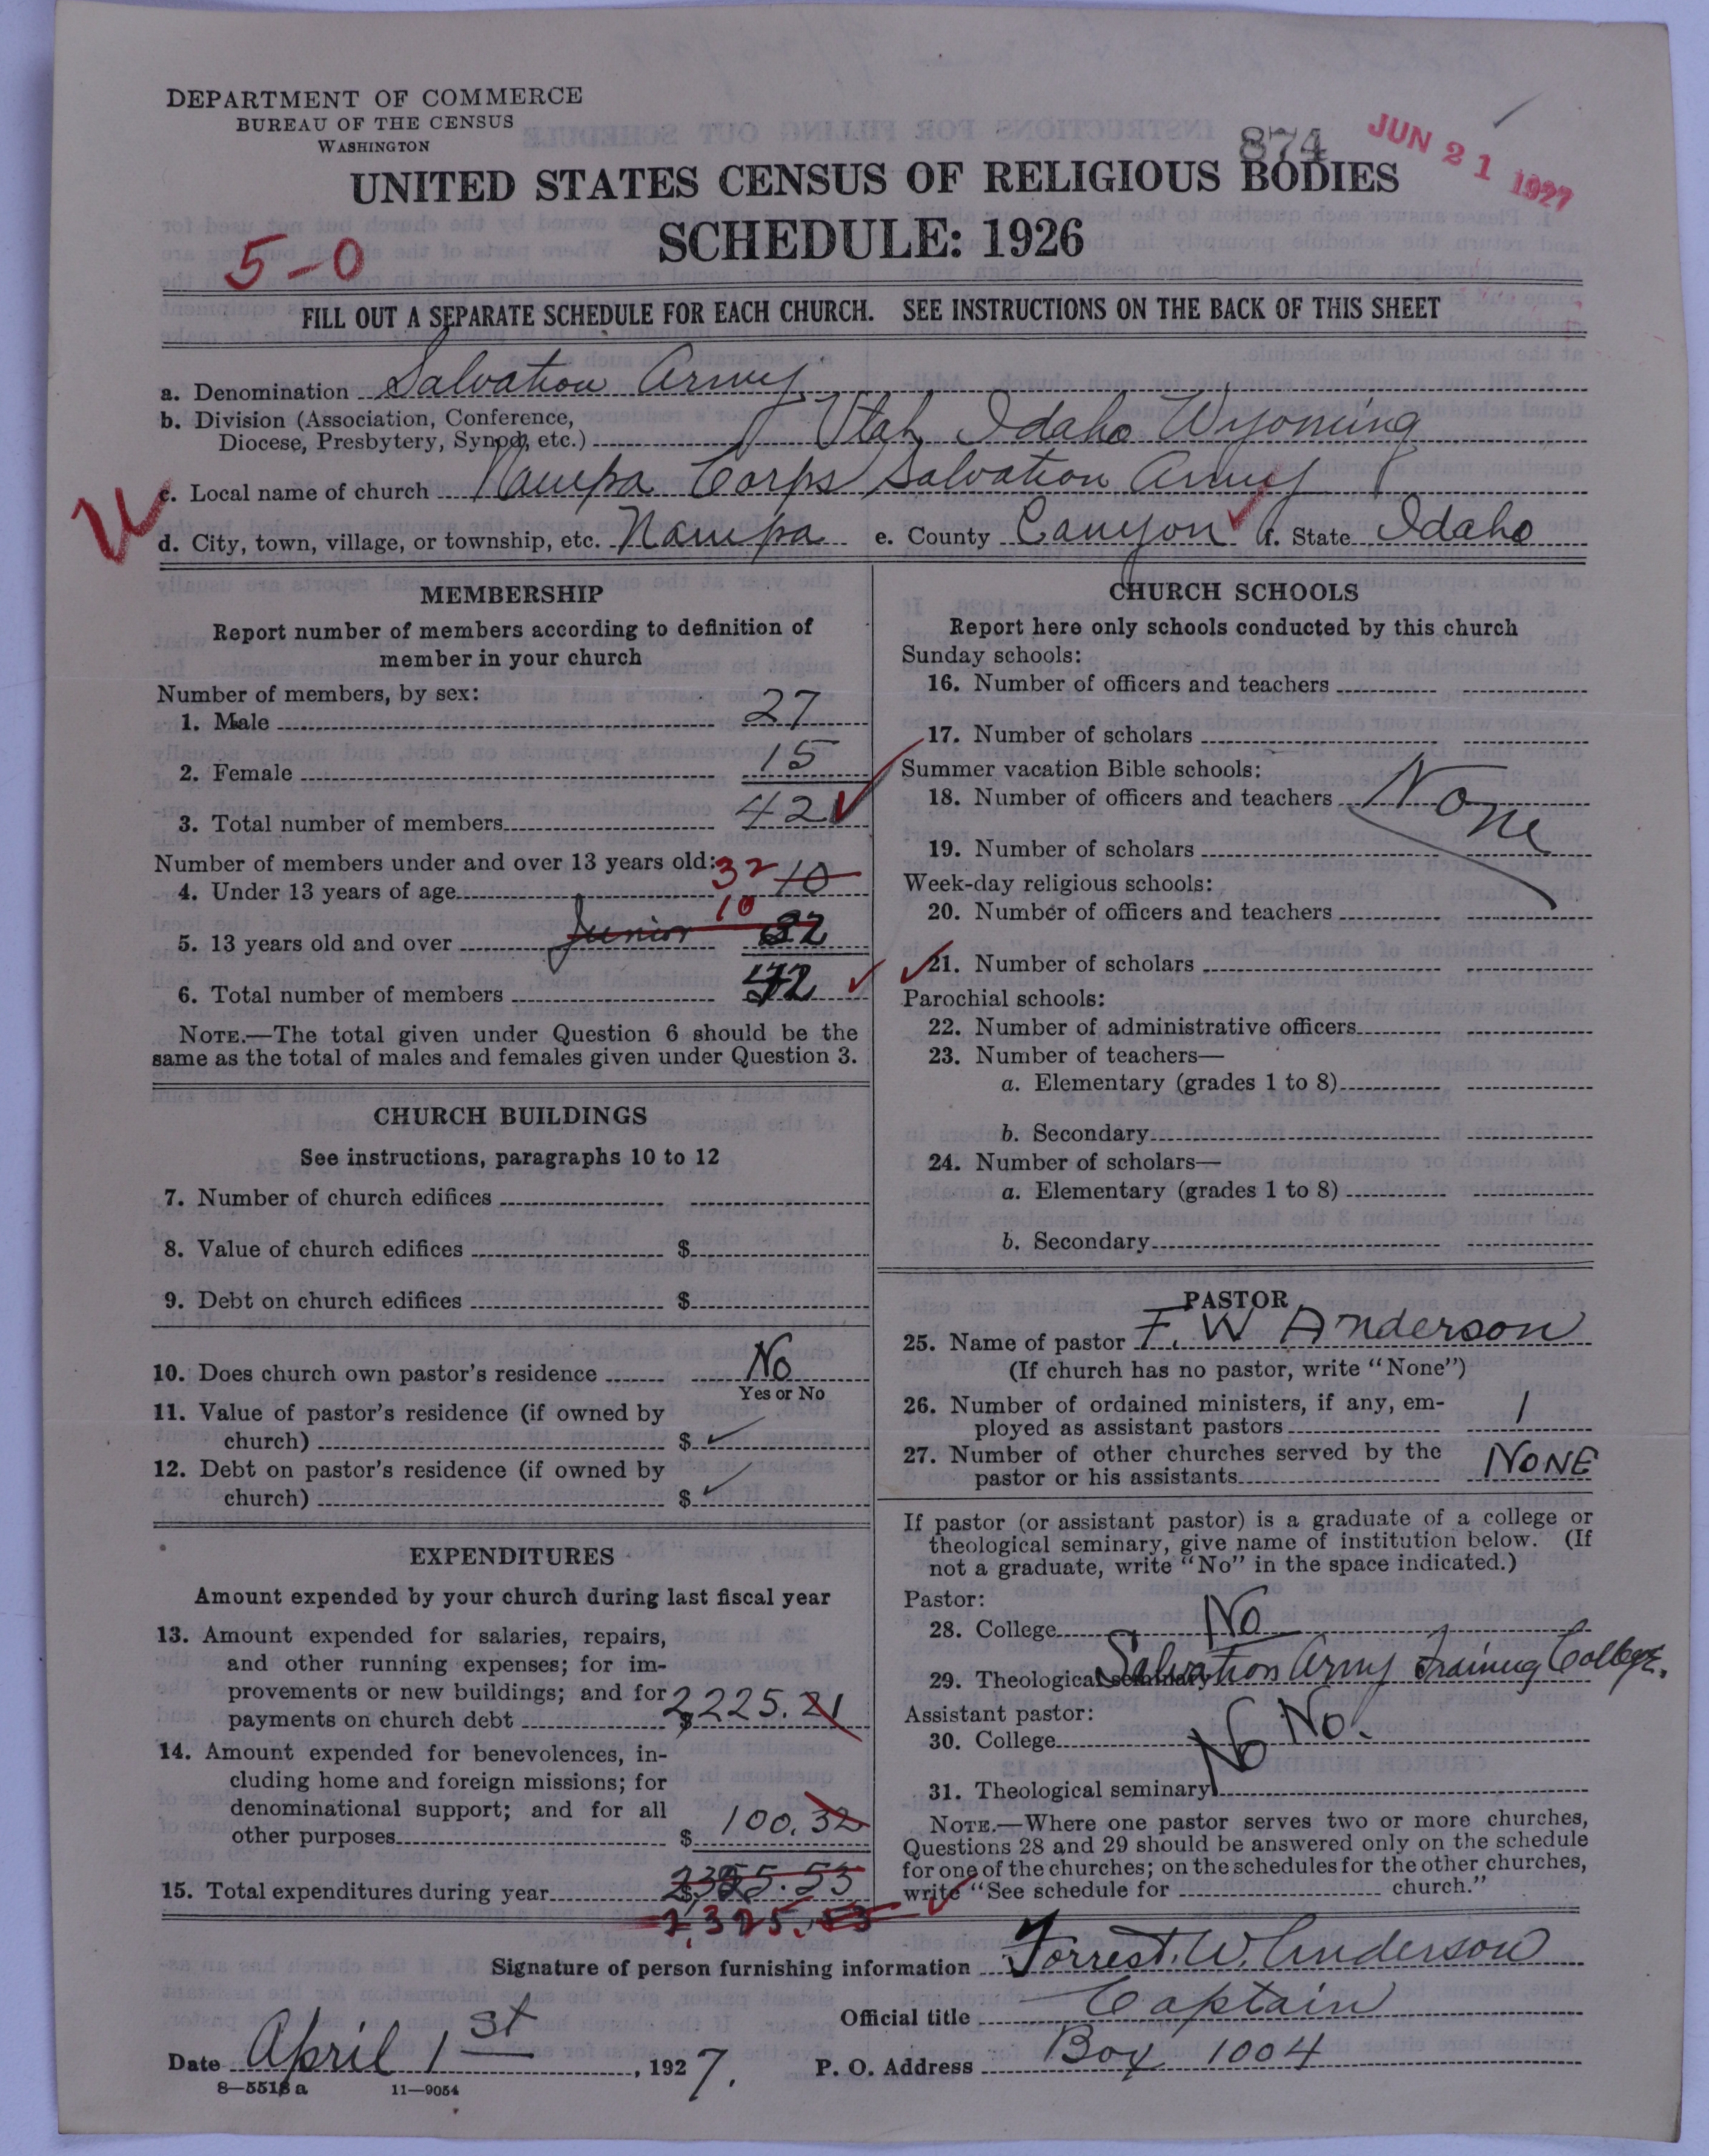 DEPARTMENT OF COMMERCE
BUREAU OF THE CENSUS
WASHINGTON
874
JUN 21 1927
UNITED STATES CENSUS OF RELIGIOUS BODIES
SCHEDULE: 1926
5-0
FILL OUT A SEPARATE SCHEDULE FOR EACH CHURCH. SEE INSTRUCTIONS ON THE BACK OF THIS SHEET
a. Denomination Salvation Army
b. Division (Association, Conference,
Diocese, Presbytery, Synod, etc.) Utah, Idaho Wyoming
c. Local name of church Nampa Corps Salvation Army
d. City, town, village, or township, etc. Nampa e. County Canyon f. State Idaho
MEMBERSHIP
Report number of members according to definition of
member in your church
Number of members, by sex:
1. Male 27
2. Female 15
3. Total number of members 42
Number of members under and over 13 years old:
4. Under 13 years of age 32 10
5. 13 years old and over Junior 10 32
6. Total number of members 42
NOTE.—The total given under Question 6 should be the
same as the total of males and females given under Question 3.
CHURCH BUILDINGS
See instructions, paragraphs 10 to 12
7. Number of church edifices
8. Value of church edifices $
9. Debt on church edifices $
10. Does church own pastor's residence No
Yes or No
11. Value of pastor's residence (if owned by
church) $
12. Debt on pastor's residence (if owned by
church) $
EXPENDITURES
Amount expended by your church during last fiscal year
13. Amount expended for salaries, repairs,
and other running expenses; for im-
provements or new buildings; and for
payments on church debt $ 2,225.21
14. Amount expended for benevolences, in-
cluding home and foreign missions; for
denominational support; and for all
other purposes $ 100.32
15. Total expenditures during year $ 2325.53
2,325.53
CHURCH SCHOOLS
Report here only schools conducted by this church
Sunday schools:
16. Number of officers and teachers
17. Number of scholars
Summer vacation Bible schools:
18. Number of officers and teachers None
19. Number of scholars
Week-day religious schools:
20. Number of officers and teachers
21. Number of scholars
Parochial schools:
22. Number of administrative officers
23. Number of teachers—
a. Elementary (grades 1 to 8)
b. Secondary
24. Number of scholars—
a. Elementary (grades 1 to 8)
b. Secondary
PASTOR
25. Name of pastor F. W Anderson
(If church has no pastor, write "None")
26. Number of ordained ministers, if any, em-
ployed as assistant pastors 1
27. Number of other churches served by the
pastor or his assistants NONE
If pastor (or assistant pastor) is a graduate of a college or
theological seminary, give name of institution below. (If
not a graduate, write "No" in the space indicated.)
Pastor:
28. College No
29. Theological seminary Salvation Army Training College.
Assistant pastor:
30. College No.
31. Theological seminary No
NOTE.—Where one pastor serves two or more churches,
Questions 28 and 29 should be answered only on the schedule
for one of the churches; on the schedules for the other churches,
write "See schedule for church."
Signature of person furnishing information Forrest. W. Anderson
Official title Captain
Date April 1st, 1927. P. O. Address Box 1004
8—5518 a 11—9054